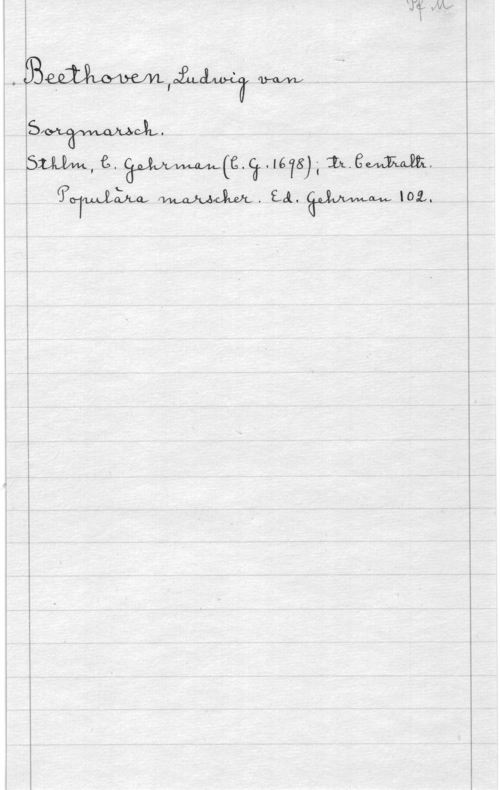 Pf M
Beethoven, Ludwig van
Sorgmarsch.
Sthlm, C. Gehrman (C.G. 1698); tr. Centraltr.
Populära marscher. Ed. Gehrman 102.